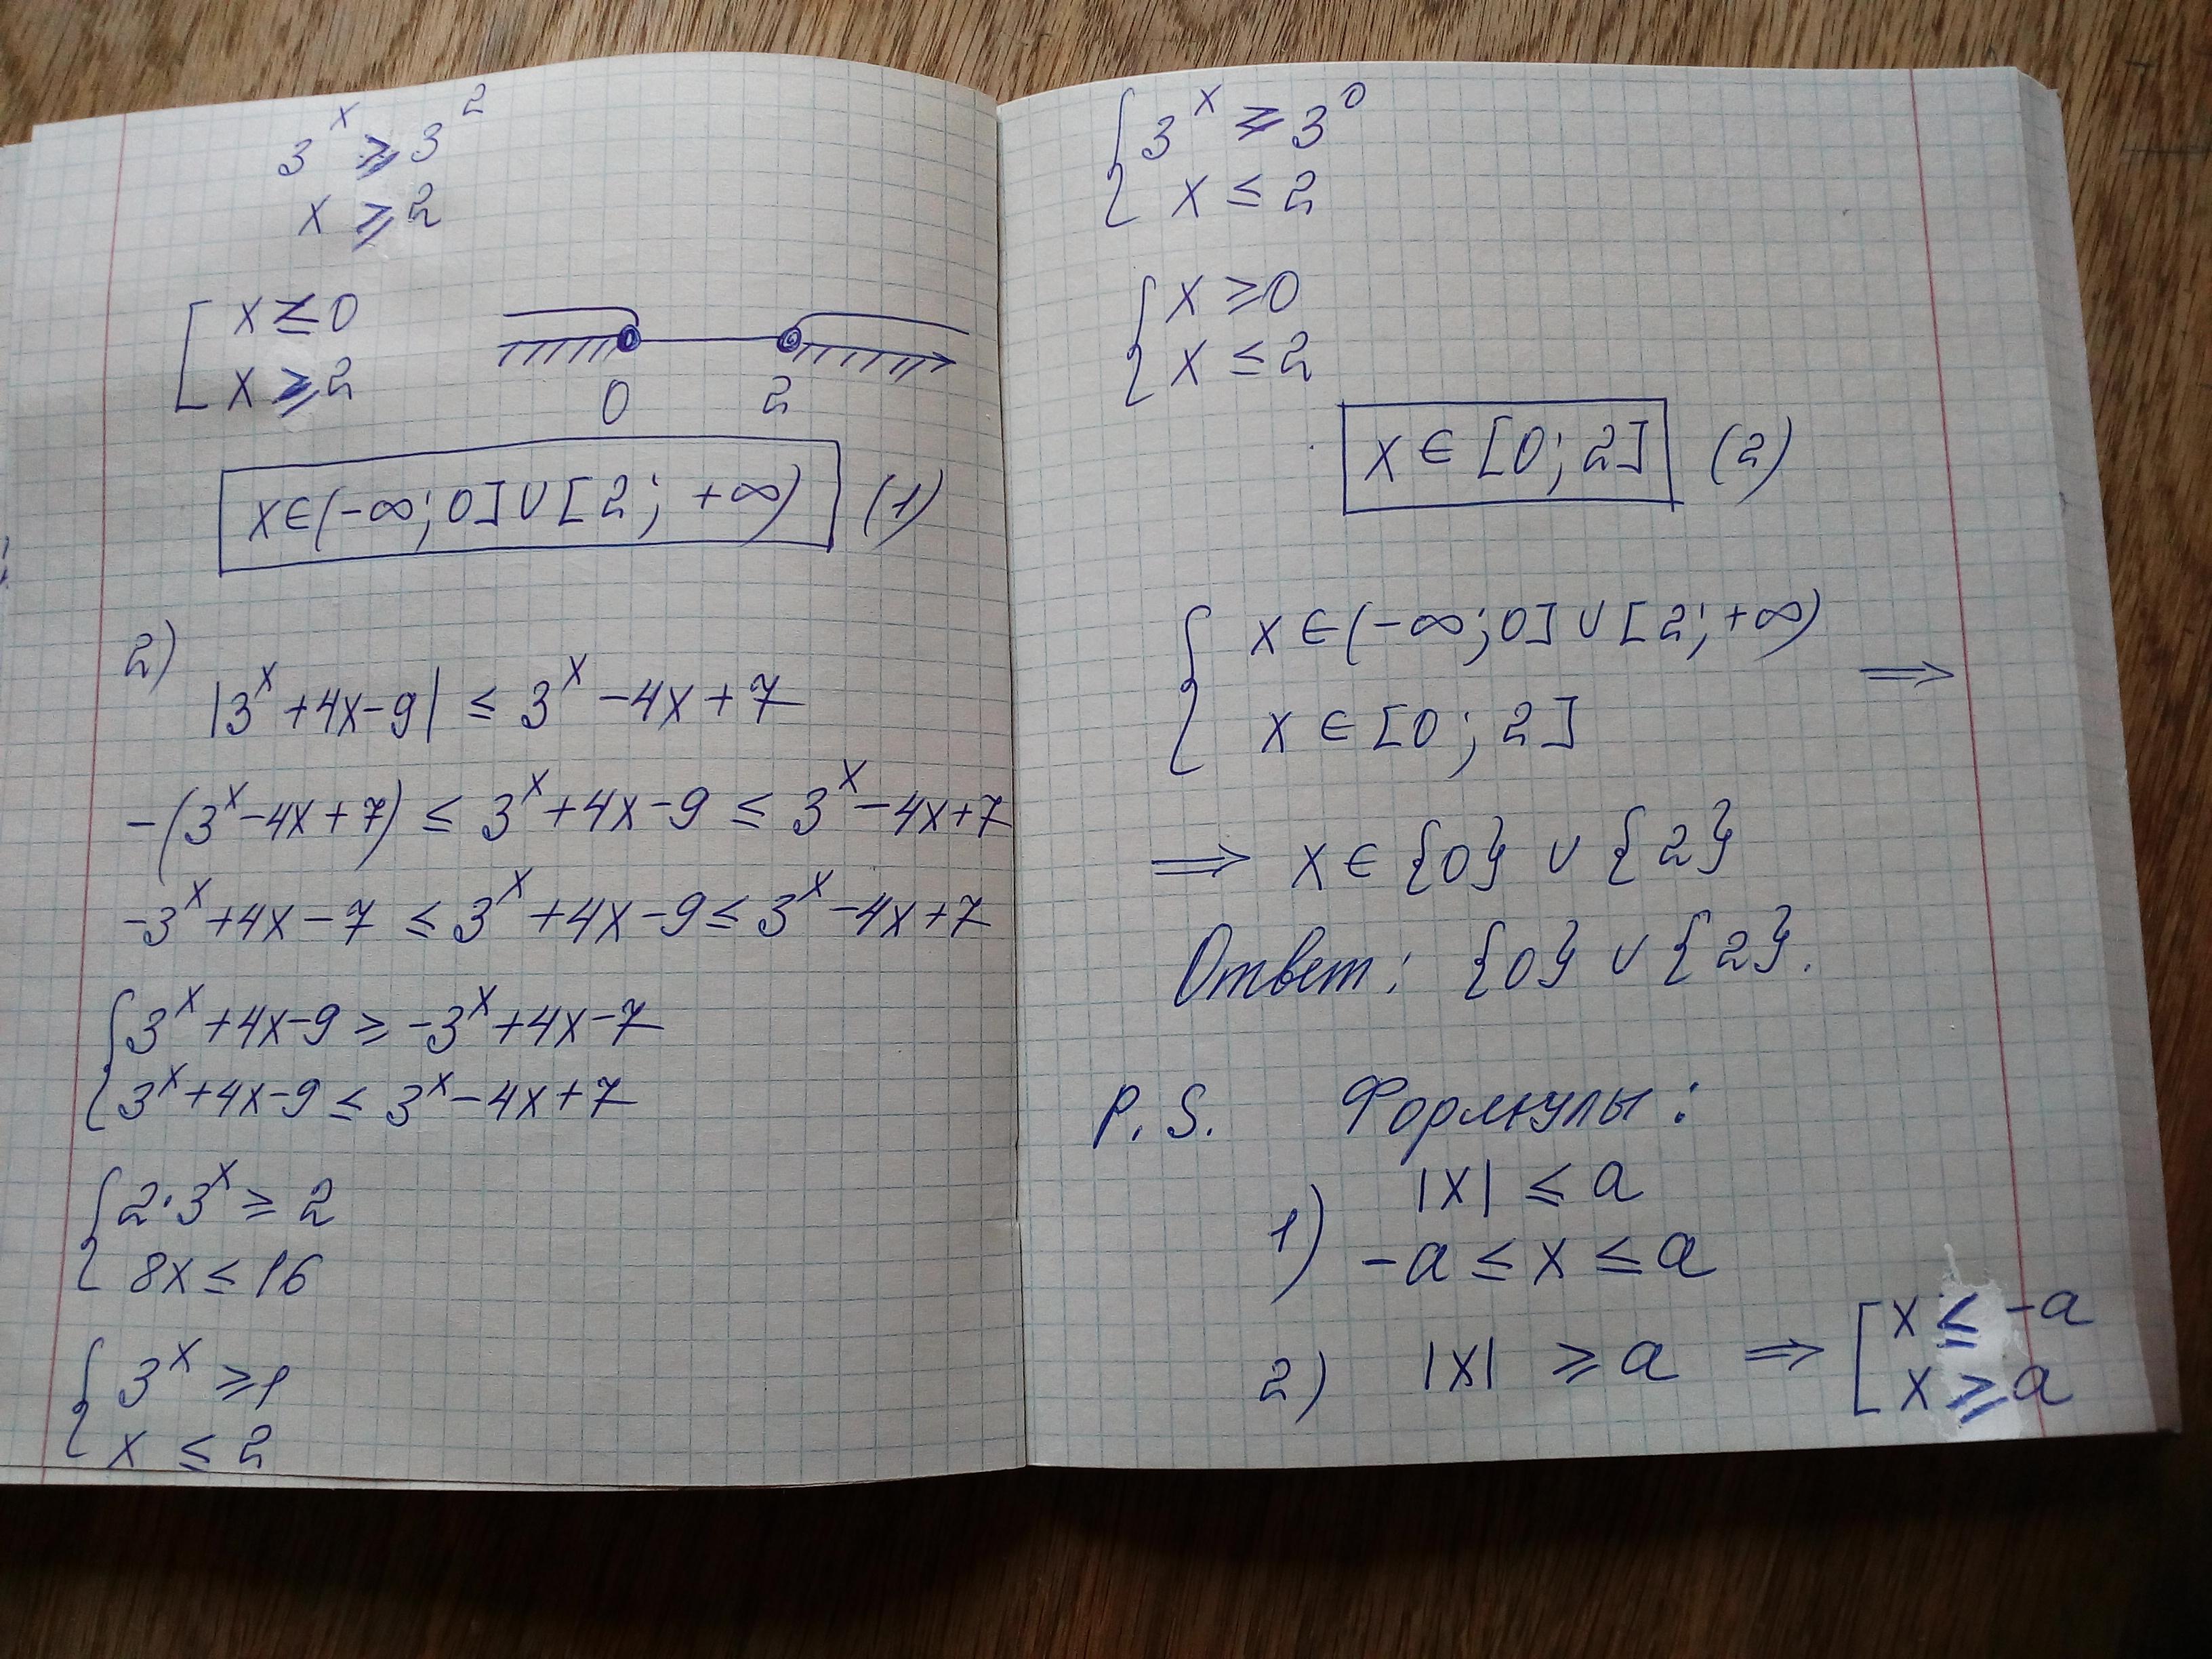 3^x ⩾ 3^2
x ⩾ 2
[ x ≤ 0
x ⩾ 2
0 2
x∈(-∞;0]∪[2; +∞) (1)
2)
|3^x+4x-9| ≤ 3^x-4x+7
-(3^x-4x+7) ≤ 3^x+4x-9 ≤ 3^x-4x+7
-3^x+4x-7 ≤ 3^x+4x-9 ≤ 3^x-4x+7
{ 3^x+4x-9 ⩾ -3^x+4x-7
3^x+4x-9 ≤ 3^x-4x+7
{ 2·3^x ⩾ 2
8x ≤ 16
{ 3^x ⩾ 1
x ≤ 2
{ 3^x ⩾ 3^0
x ≤ 2
{ x ⩾ 0
x ≤ 2
x ∈ [0; 2] (2)
{ x ∈ (-∞;0] ∪ [2;+∞)
x ∈ [0; 2] ⟹
⟹ x ∈ {0} ∪ {2}
Ответ: {0} ∪ {2}.
P. S. Формулы:
1) |x| ≤ a
-a ≤ x ≤ a
2) |x| ⩾ a ⟹ [ x ≤ -a
x ⩾ a